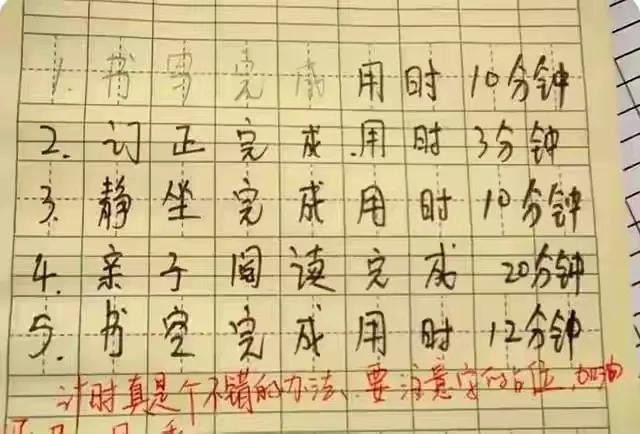 1. 书写完成用时10分钟
2. 订正完成用时3分钟
3. 静坐完成用时10分钟
4. 亲子阅读完成20分钟
5. 书空完成用时12分钟
计时真是个不错的办法、要注意字的占位,加油